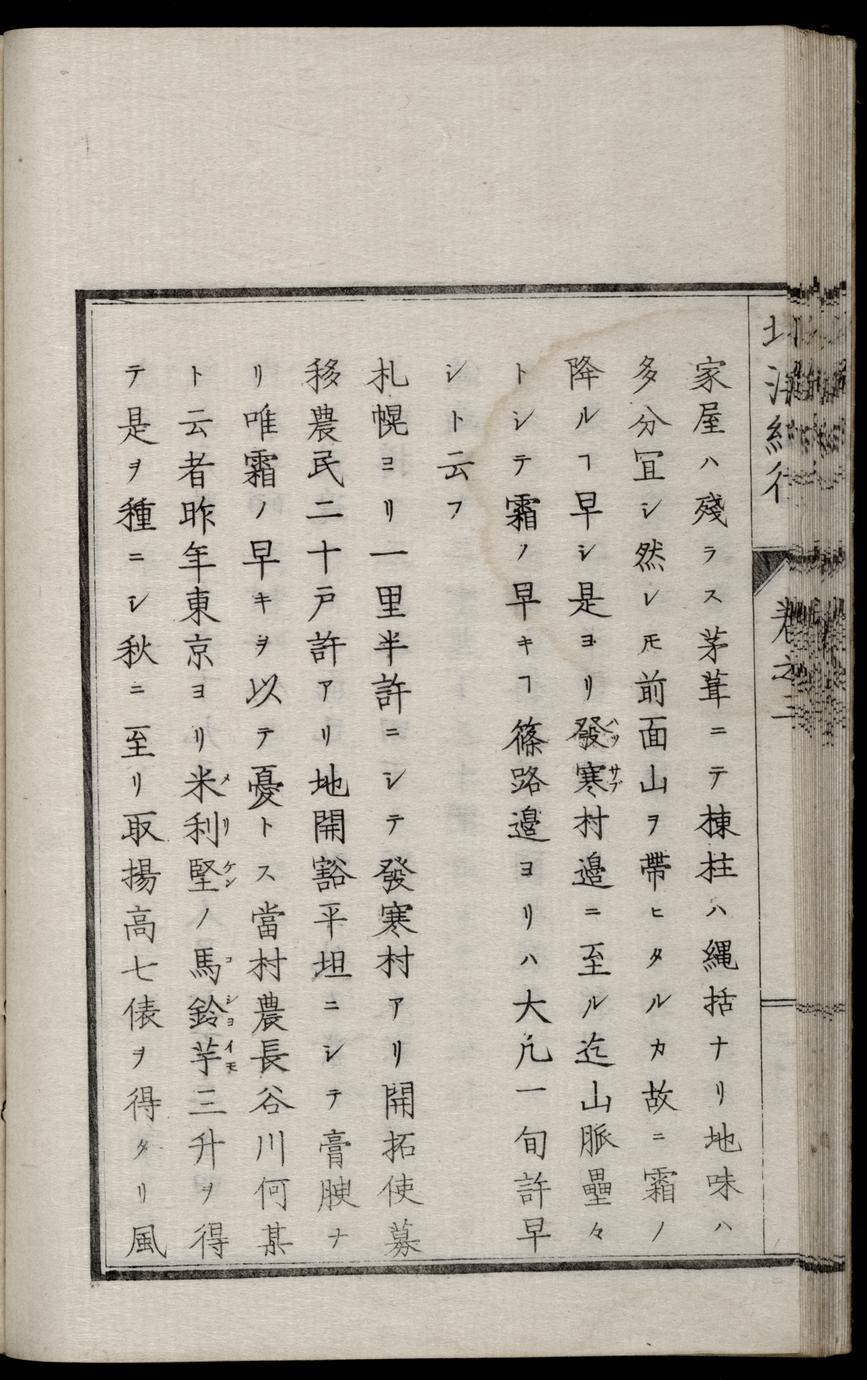 家屋ハ殘ラス茅葺ニテ棟柱ハ縄括ナリ地味ハ
多分冝シ然レ𪜈前面山ヲ帶ヒタルカ故ニ霜ノ
降ルヿ早シ是ヨリ發寒村邉ニ至ル迄山脈壘々
トシテ霜ノ早キヿ篠路邉ヨリハ大凢一旬許早
シト云フ
札幌ヨリ一里半許ニシテ發寒村アリ開拓使募
移農民二十戸許アリ地開豁平坦ニシテ膏腴ナ
リ唯霜ノ早キヲ以テ憂トス當村農長谷川何某
ト云者昨年東京ヨリ米利堅ノ馬鈴芋三升ヲ得
テ是ヲ種ニシ秋ニ至リ取揚高七俵ヲ得タリ風